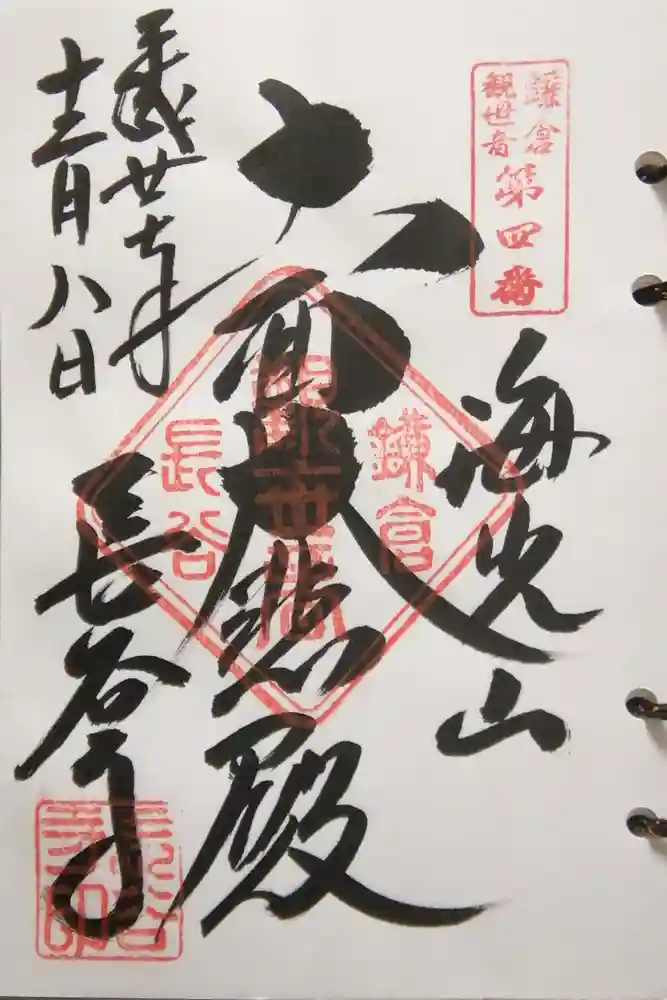 鎌倉
観世音
第四番
海光山
十一面大悲殿
鎌倉
長谷
長谷寺
長谷
寺印
平成廿七年
十二月八日